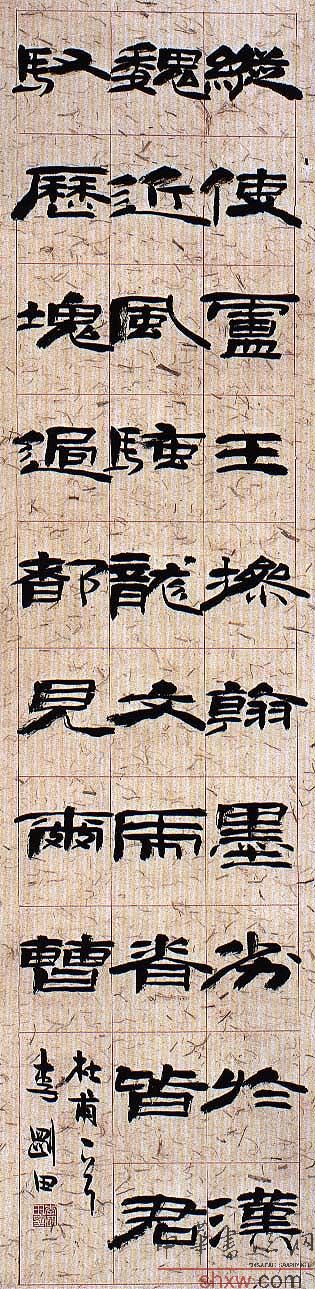 縱使盧王操翰墨劣於漢
魏近風騷龍文虎脊皆君
馭歷塊過都見爾曹
杜甫
李剛田
shxw.com